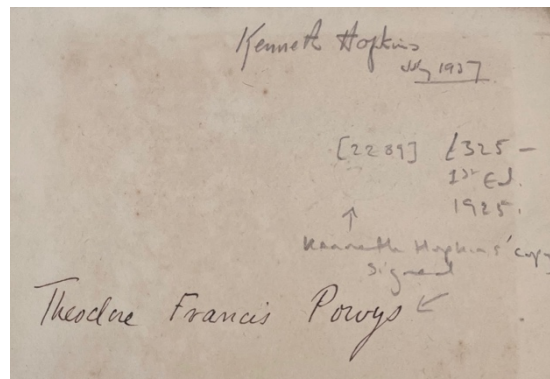 Kenneth Hopkins
July 1937
[2289] £325 –
1st Ed.
1925.
↑
Kenneth Hopkins' copy
Signed
Theodore Francis Powys ↙